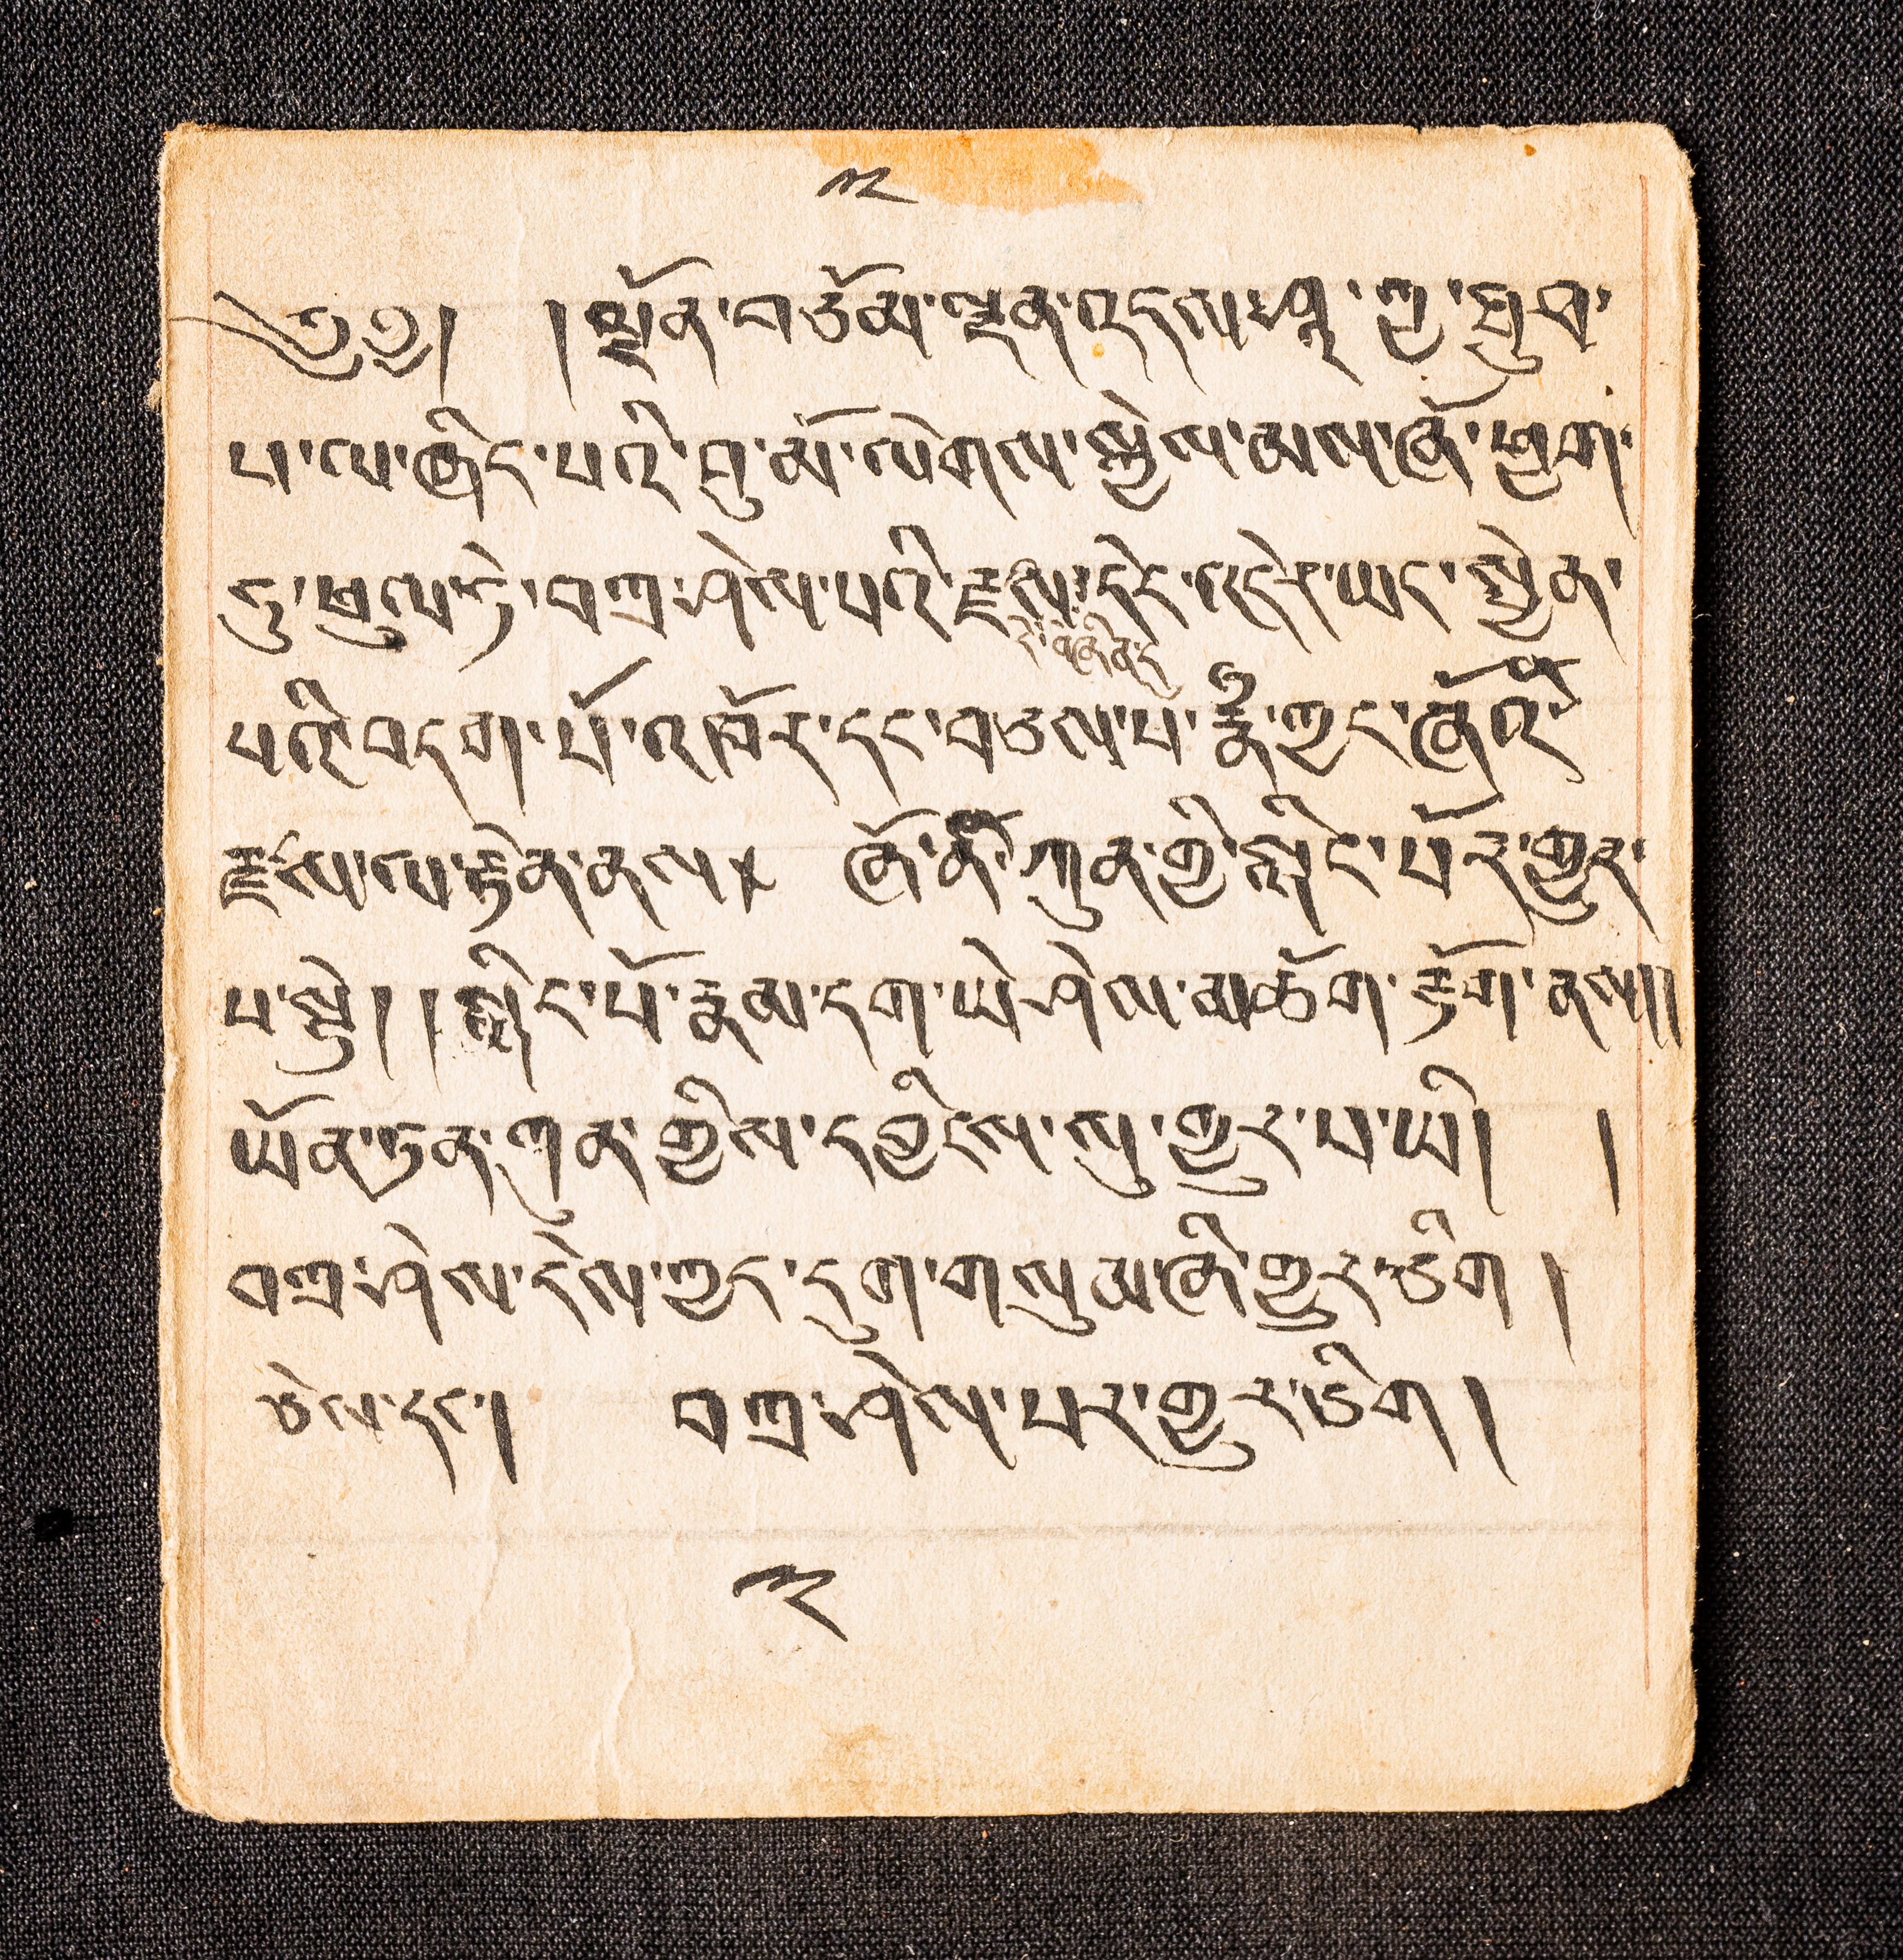 ༄༅། །སྔོན་བཅོམ་ལྡན་འདས་ཤཱ་ཀྱ་ཐུབ་
པ་ལ་ཞིང་པའི་བུ་མོ་ལེགས་སྐྱེས་མས་ཞོ་ཕྱག་
ཏུ་ཕུལ་ཏེ་བཀྲ་ཤིས་པའི་རྫས་དེང་འདིར་ཡང་སྦྱིན་
པའི་བདག་པོ་འཁོར་དང་བཅས་པ་རྣམས་ཀྱང་ཞོའི་
རྫས་ལ་རྟེན་ནས་ ཞོ་ནི་ཀུན་གྱི་སྙིང་པོར་གྱུར་
པ་སྟེ། །སྙིང་པོ་རྣམ་དག་ཡེ་ཤེས་མཆོག་རྟོག་ནས།།
ཡོན་ཏན་ཀུན་གྱིས་དབྱིངས་སུ་གྱུར་པ་ཡི། །
བཀྲ་ཤིས་དེས་ཀྱང་དུག་གསུམ་ཞི་གྱུར་ཅིག །
ཅེས་དང་། བཀྲ་ཤིས་པར་གྱུར་ཅིག །